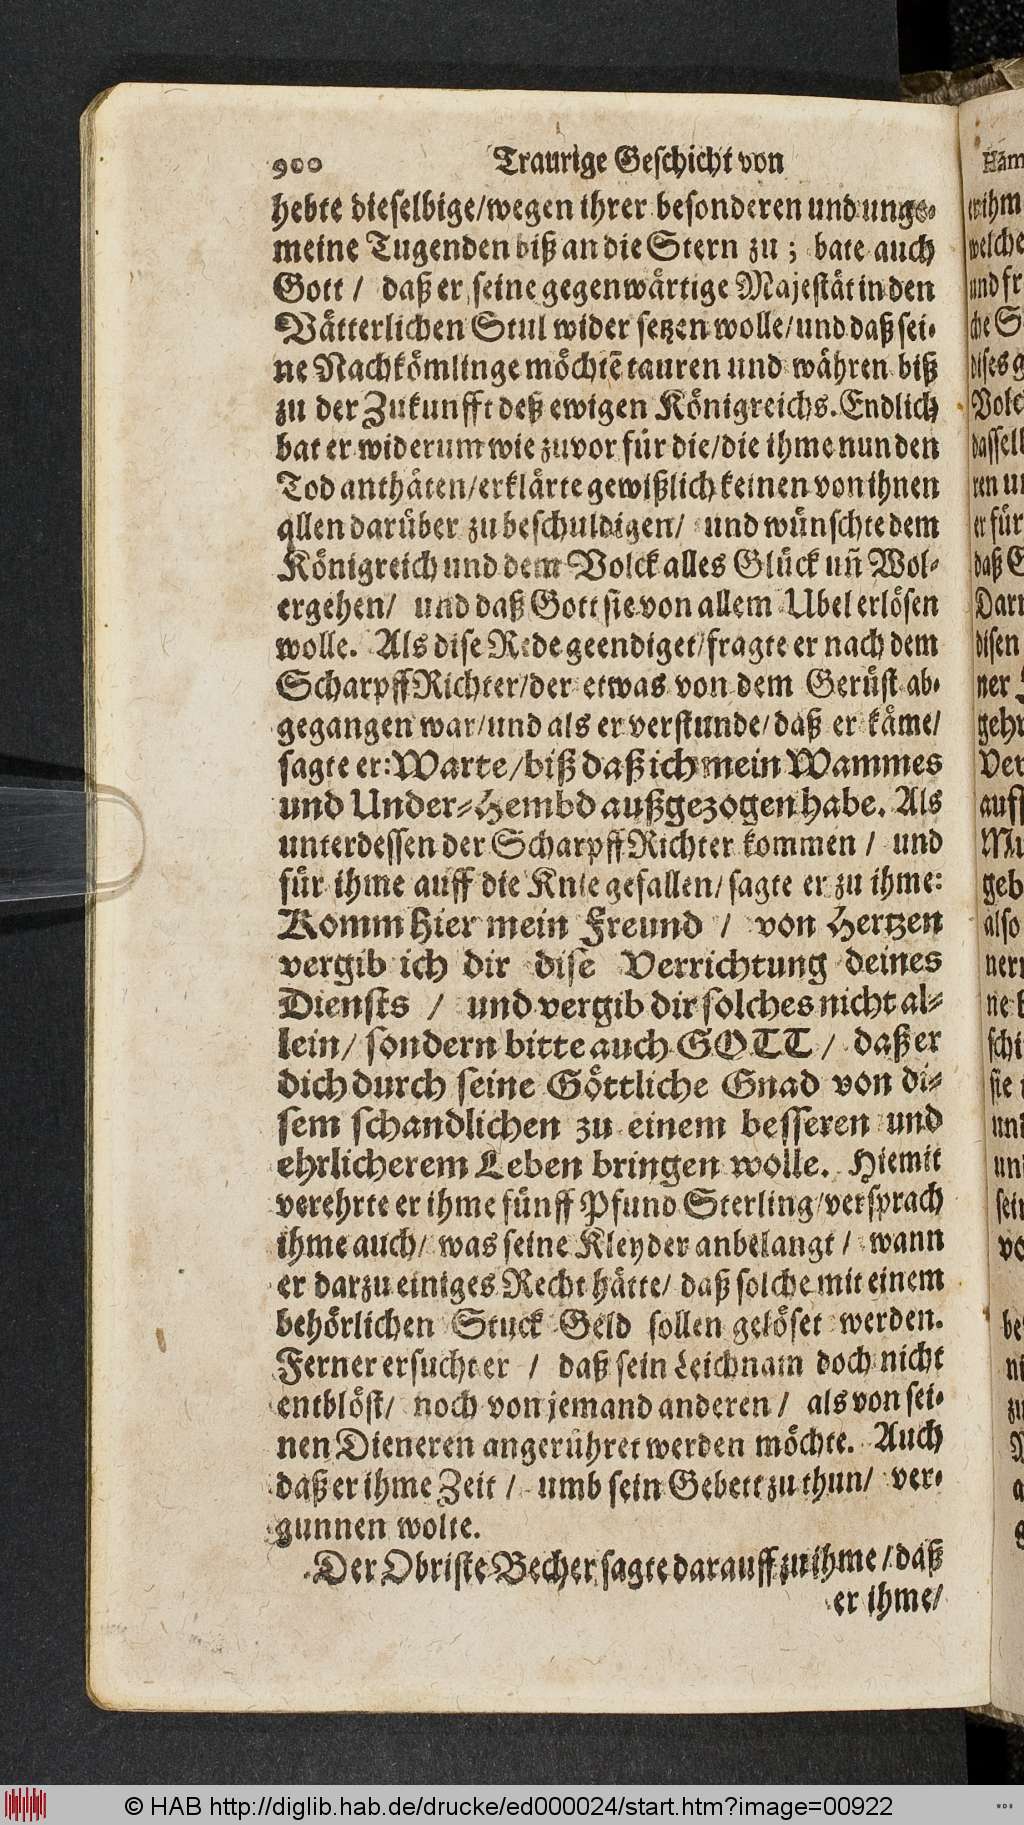 900 Traurige Geschicht von
hebte dieselbige/wegen ihrer besonderen und unge-
meine Tugenden biß an die Stern zu; bate auch
Gott / daß er seine gegenwärtige Majestät in den
Vätterlichen Stul wider setzen wolle/und daß sei-
ne Nachkömlinge möchtē tauren und währen biß
zu der Zukunfft deß ewigen Königreichs. Endlich
bat er widerum wie zuvor für die/die ihme nun den
Tod anthäten/erklärte gewißlich keinen von ihnen
allen darüber zu beschuldigen/ und wünschte dem
Königreich und dem Volck alles Glück uñ Wol-
ergehen/ und daß Gott sie von allem Ubel erlösen
wolle. Als dise Rede geendiget/fragte er nach dem
ScharpffRichter/der etwas von dem Gerüst ab-
gegangen war/und als er verstunde/daß er käme/
sagte er: Warte/biß daß ich mein Wammes
und Under-Hembd außgezogen habe. Als
unterdessen der ScharpffRichter kommen / und
für ihme auff die Knie gefallen/sagte er zu ihme:
Komm hier mein Freund / von Hertzen
vergib ich dir dise Verrichtung deines
Diensts / und vergib dir solches nicht al-
lein/ sondern bitte auch GOTT / daß er
dich durch seine Göttliche Gnad von di-
sem schandlichen zu einem besseren und
ehrlicherem Leben bringen wolle. Hiemit
verehrte er ihme fünff Pfund Sterling/versprach
ihme auch/ was seine Kleyder anbelangt / wann
er darzu einiges Recht hätte/ daß solche mit einem
behörlichen Stuck Geld sollen gelöset werden.
Ferner ersucht er / daß sein Leichnam doch nicht
entblöst/ noch von jemand anderen / als von sei-
nen Dieneren angerühret werden möchte. Auch
daß er ihme Zeit / umb sein Gebett zu thun/ ver-
gunnen wolte.
Der Obriste Becher sagte darauff zu ihme / daß
er ihme/
© HAB http://diglib.hab.de/drucke/ed000024/start.htm?image=00922